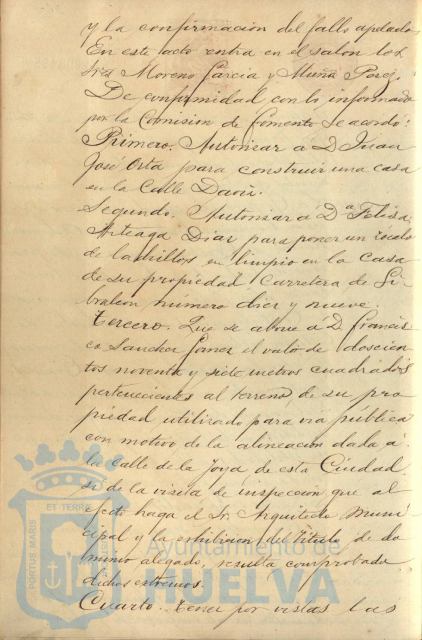 y la confirmacion del fallo apelado
En este acto entra en el salon los
Sres Moreno Garcia y Muñiz Perez.
De conformidad con lo informado
por la Comision de fomento se acordó:
Primero. Autorizar a D Juan
José Orta para construir una casa
en la Calle Daoiz.
Segundo. Autorizar á Dª Felisa
Arteaga Diaz para poner un zocalo
de ladrillos en limpio en la casa
de su propiedad Carretera de Gi-
braleon número diez y nueve.
Tercero. Que se abone á D. Francis-
co Sanchez Gomez el valor de doscien
tos noventa y siete metros cuadrados
pertenecientes al terreno de su pro
piedad utilizado para via pública
con motivo de la alineacion dada á
la calle de la Joya de esta Ciudad
si de la visita de inspeccion que al
efecto haga el Sr. Arquitecto Muni
cipal y la exhibicion del titulo de do
minio alegado, resulta comprobado
dichos extremos.
Cuarto. Tener por vistas las
PORTUS MARIS
ET TERRE
Ayuntamiento de
HUELVA